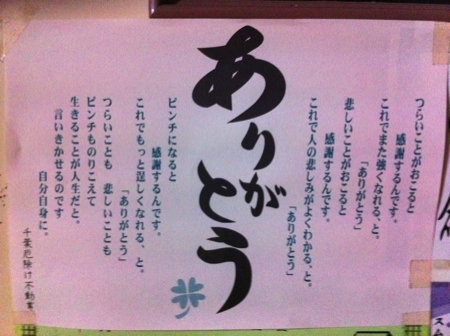 つらいことがおこると
感謝するんです。
これでまた強くなれる、と。
「ありがとう」
悲しいことがおこると
感謝するんです。
これで人の悲しみがよくわかる、と。
「ありがとう」
ありがとう
ピンチになると
感謝するんです。
これでもっと逞しくなれる、と。
「ありがとう」
つらいことも 悲しいことも
ピンチものりこえて
生きることが人生だと。
言いきかせるのです
自分自身に。
千葉厄除け不動尊